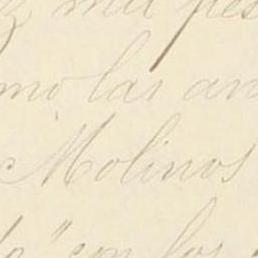 mil pes
mo las an
Molinos
" con los